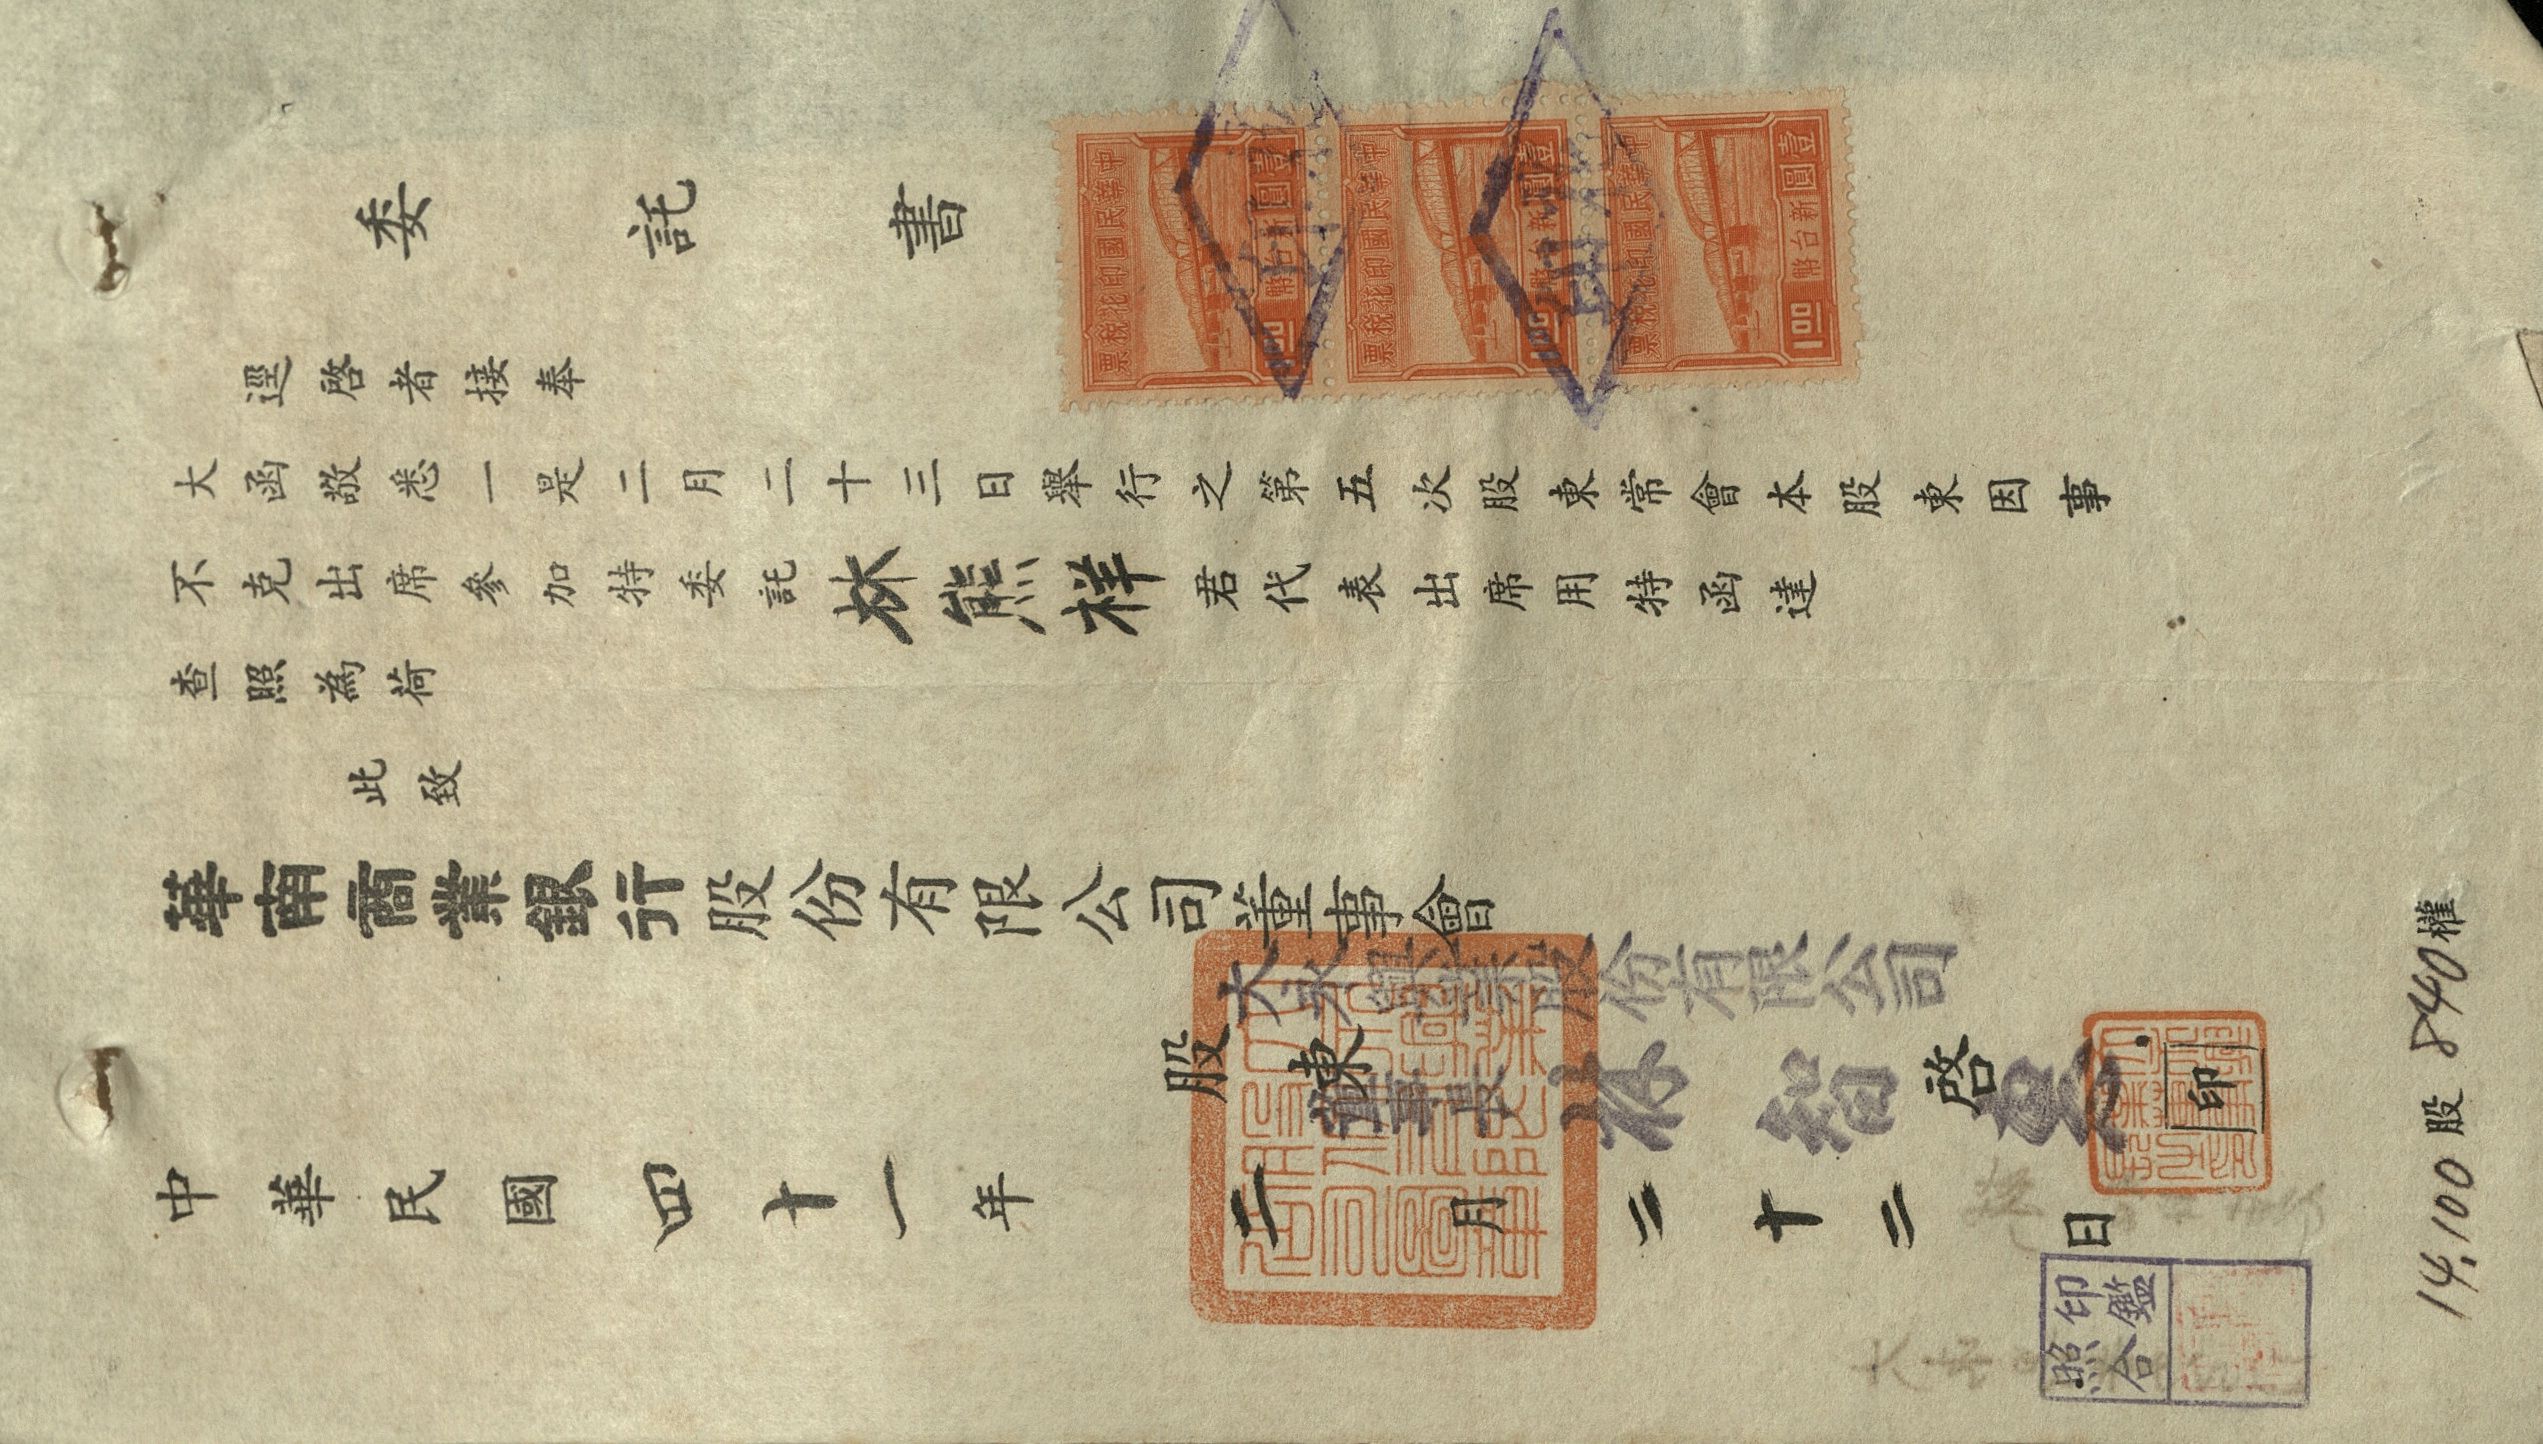 委託書
逕啓者接奉
大函敬悉一是二月二十三日舉行之第五次股東常會本股東因事
不克出席參加特委託林熊祥君代表出席用特函達
查照為荷
此致
華南商業銀行股份有限公司董事會
大永興業股份有限公司
股東 啓
董事長 林
印
中華民國四十一年二月二十二日
印鑑
照合
14,100股 840權
中華民國印花稅票
壹圓
新台幣
1.00
中華民國印花稅票
壹圓
新台幣
1.00
中華民國印花稅票
壹圓
新台幣
1.00